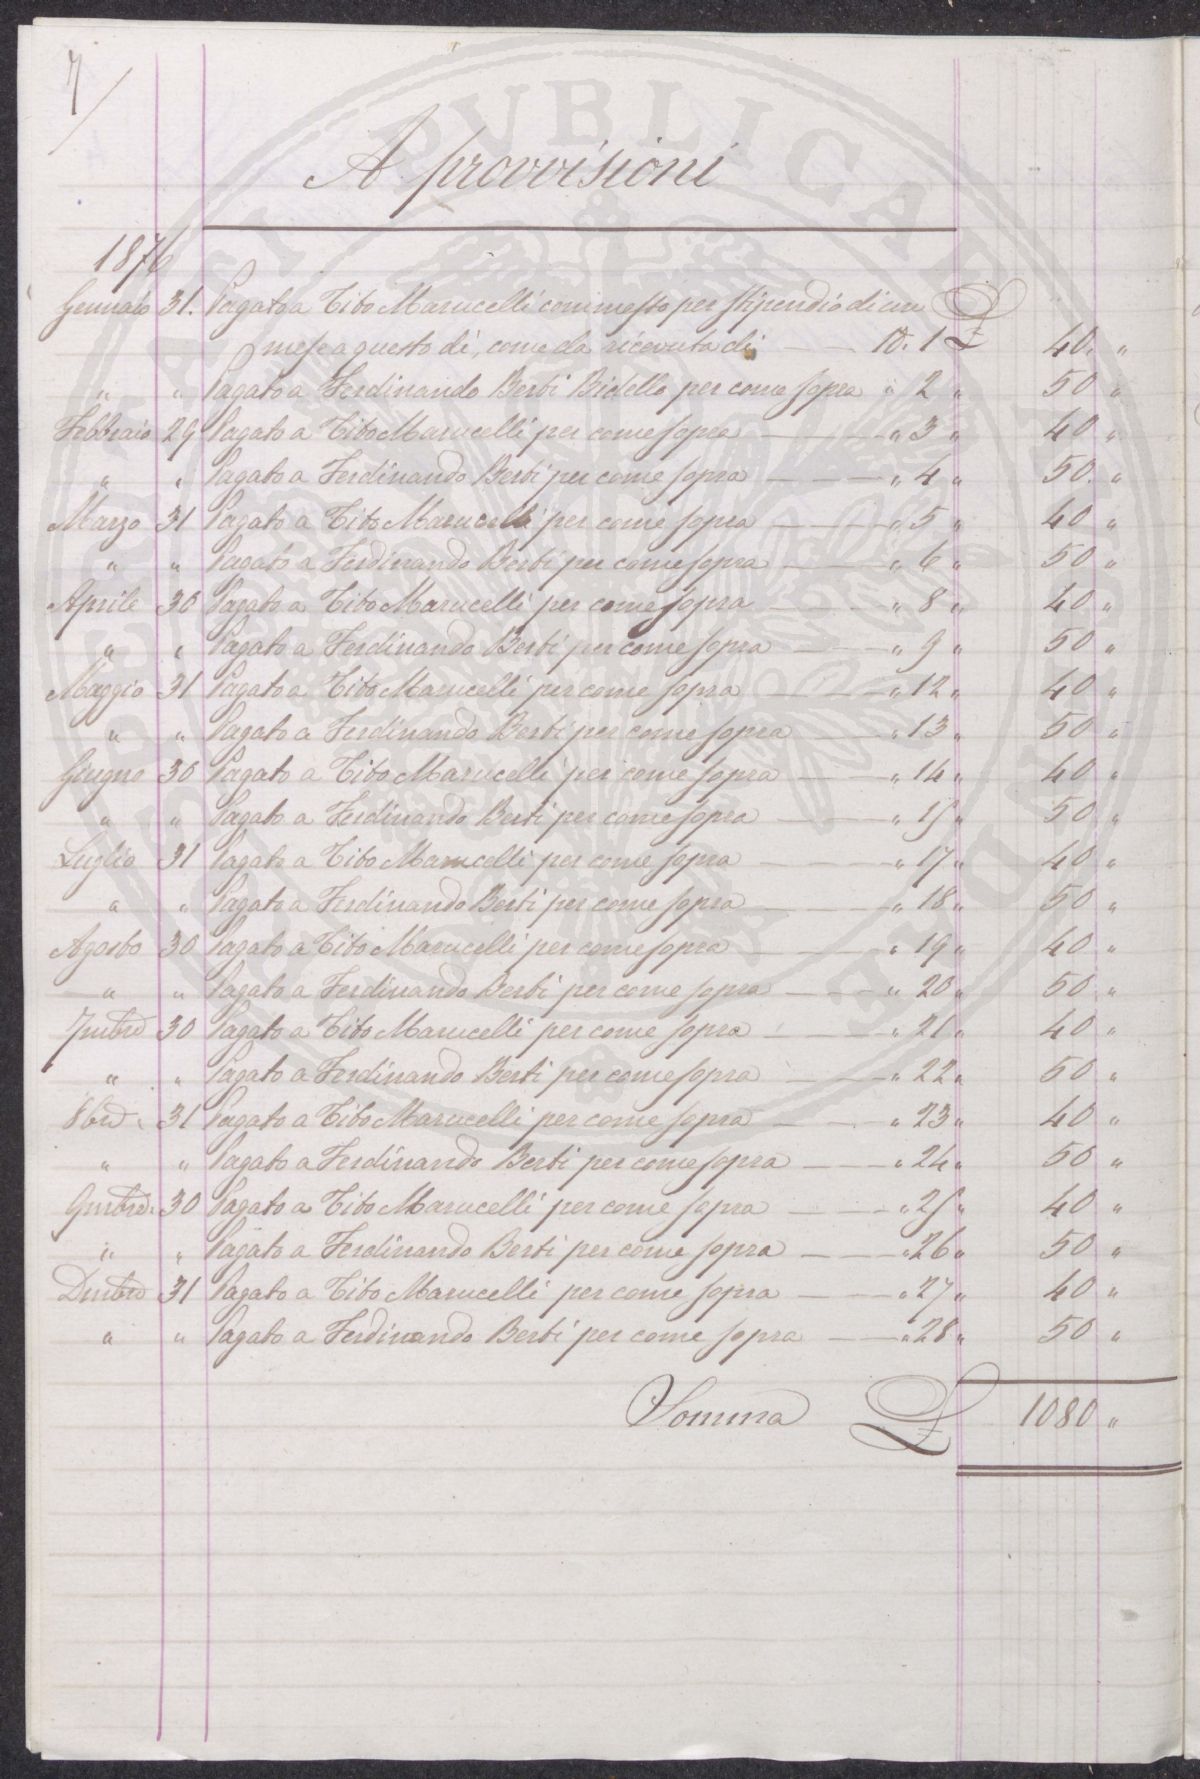 7
A provvisioni
1876
Gennaio 31. Pagato a Tito Marucelli commesso per stipendio di un
mese a questo dì, come da ricevuta di N. 1 £ 40. "
" " Pagato a Ferdinando Berti Bidello per come sopra " 2 " 50 "
Febbraio 29 Pagato a Tito Marucelli per come sopra " 3 " 40 "
" " Pagato a Ferdinando Berti per come sopra " 4 " 50. "
Marzo 31 Pagato a Tito Marucelli per come sopra " 5 " 40 "
" " Pagato a Ferdinando Berti per come sopra " 6 " 50 "
Aprile 30 Pagato a Tito Marucelli per come sopra " 8 " 40 "
" " Pagato a Ferdinando Berti per come sopra " 9 " 50 "
Maggio 31 Pagato a Tito Marucelli per come sopra " 12 " 40 "
" " Pagato a Ferdinando Berti per come sopra " 13 " 50 "
Giugno 30 Pagato a Tito Marucelli per come sopra " 14 " 40 "
" " Pagato a Ferdinando Berti per come sopra " 15 " 50 "
Luglio 31 Pagato a Tito Marucelli per come sopra " 17 " 40 "
" " Pagato a Ferdinando Berti per come sopra " 18 " 50 "
Agosto 30 Pagato a Tito Marucelli per come sopra " 19 " 40 "
" " Pagato a Ferdinando Berti per come sopra " 20 " 50 "
7mbre 30 Pagato a Tito Marucelli per come sopra " 21 " 40 "
" " Pagato a Ferdinando Berti per come sopra " 22 " 50 "
8bre 31 Pagato a Tito Marucelli per come sopra " 23 " 40 "
" " Pagato a Ferdinando Berti per come sopra " 24 " 50 "
9mbre 30 Pagato a Tito Marucelli per come sopra " 25 " 40 "
" " Pagato a Ferdinando Berti per come sopra " 26 " 50 "
Dmbre 31 Pagato a Tito Marucelli per come sopra " 27 " 40 "
" " Pagato a Ferdinando Berti per come sopra " 28 " 50 "
Somma £ 1080 "